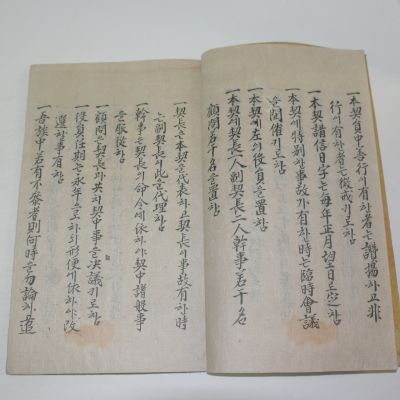 一本契員中善行이有한者는讚揚하고非
行이有한者는徵戒키로함
一本契講信日字는每年正月望日로定함
一本契에特別한事故가有한는時는臨時會議
을開催키로함
一本契에左의役員을置함
一本契에契長一人副契長二人幹事若干名
顧問若干名을置함
一契長은本契을代表하고契長이事故有한時
는副契長이此을代理함
一幹事은契長의命令에依하야契中諸般事
을服從함
一顧問은契長과共히契中事을決議키로함
一役員任期는永年으로하되形便에依하야改
選할事有함
一吾族中若有不參者則何時을勿論하고追